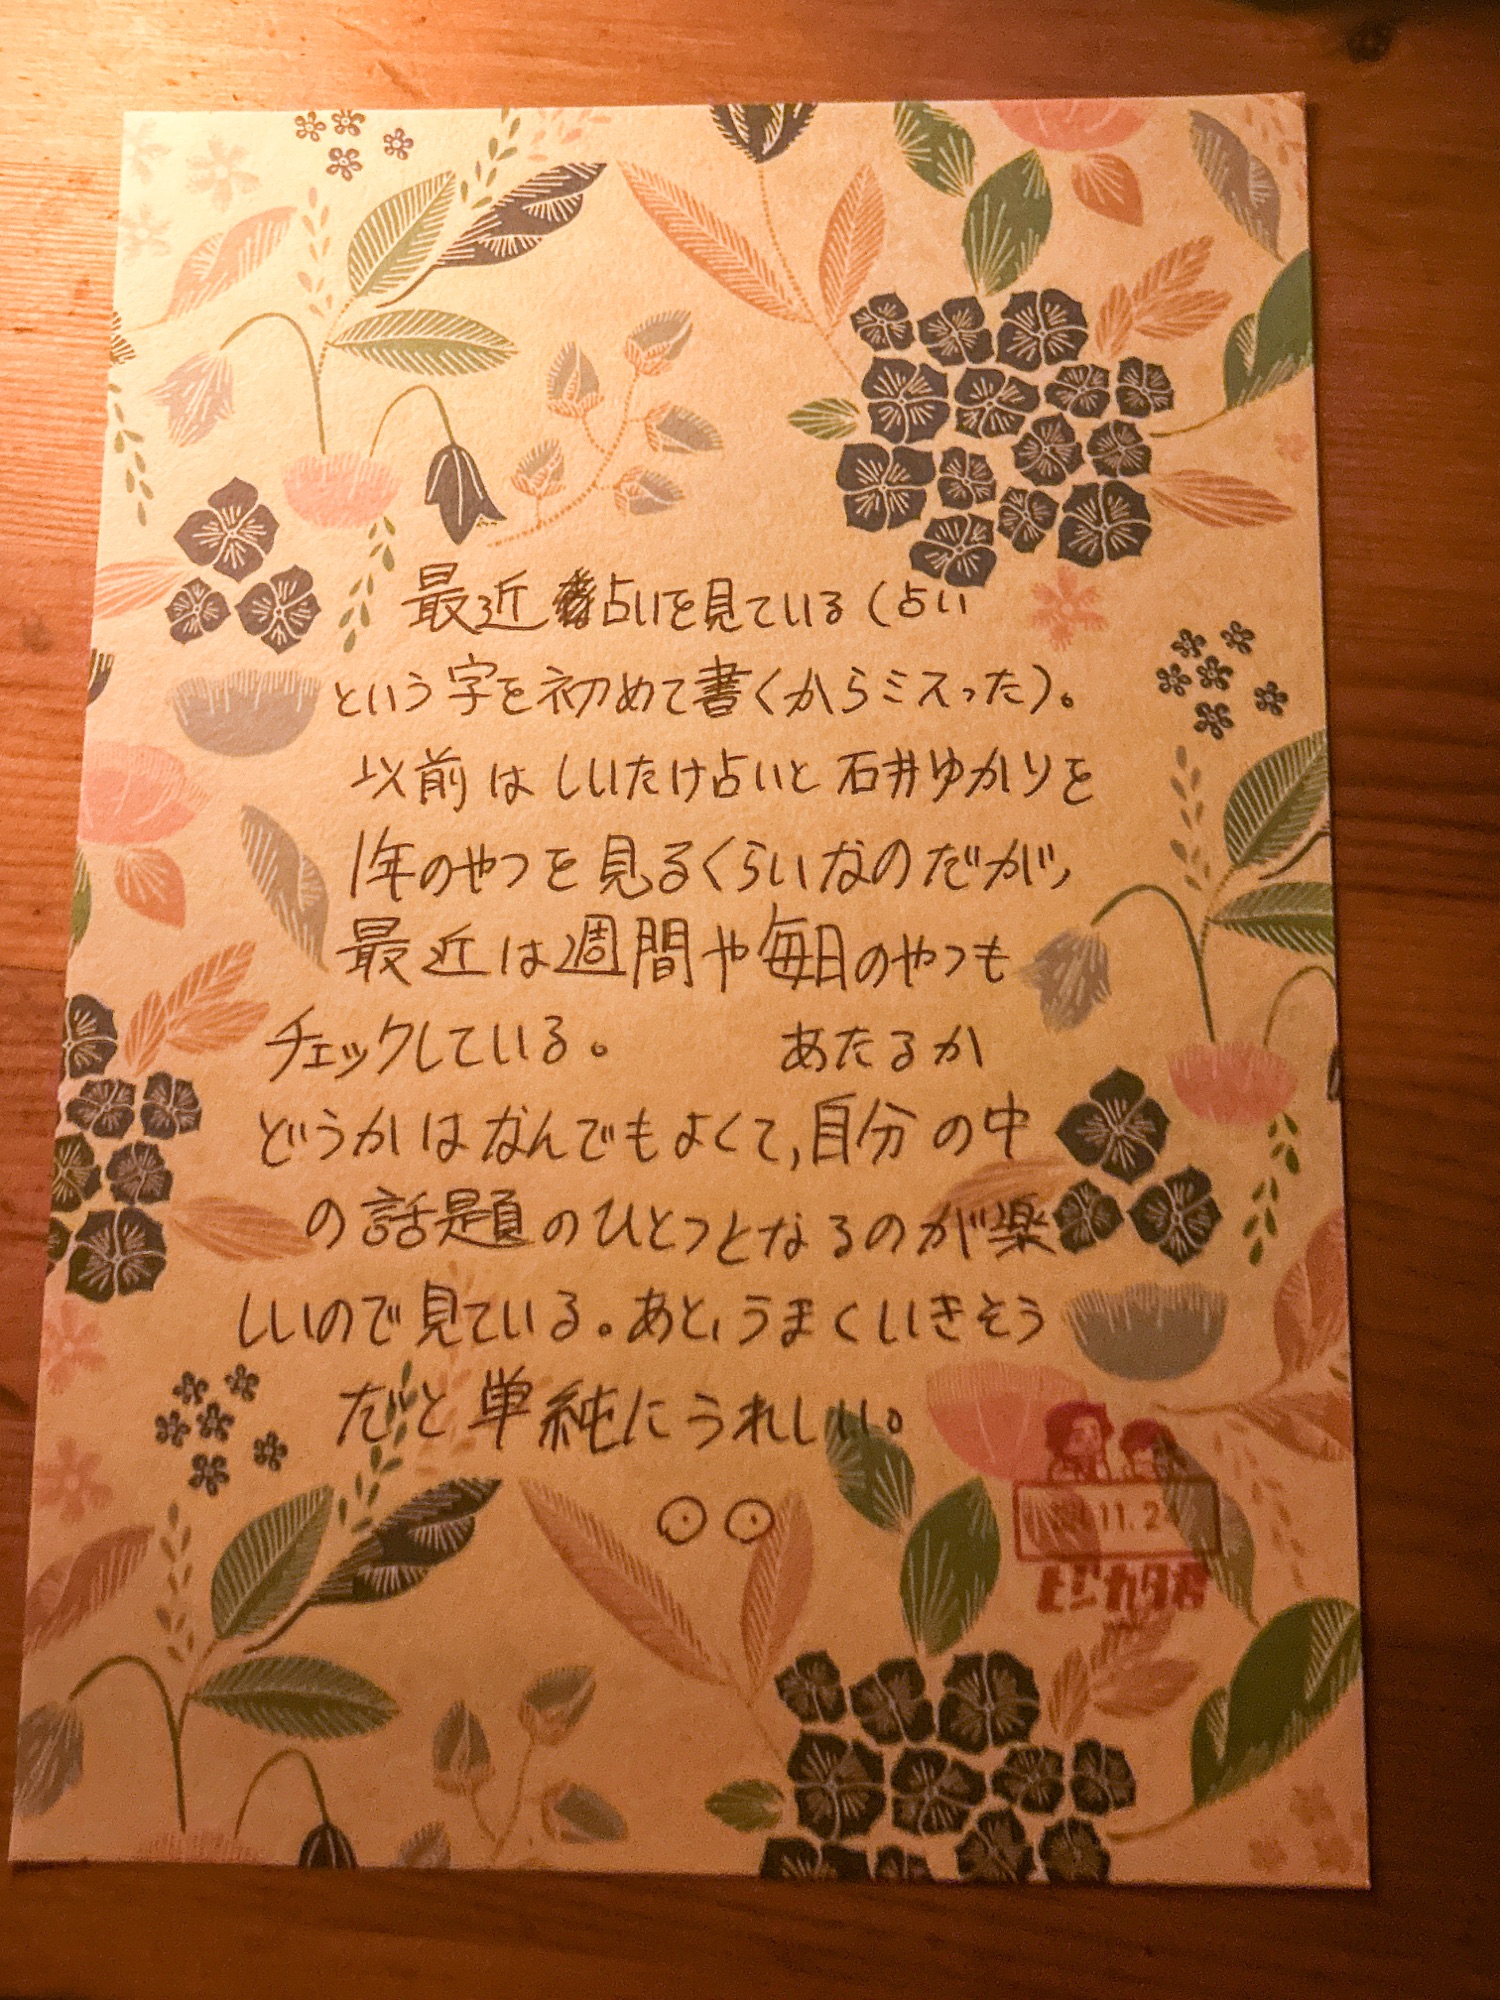 最近占いを見ている(占い
という字を初めて書くからミスった)。
以前はしいたけ占いと石井ゆかりを
1年のやつを見るくらいなのだが、
最近は週間や毎日のやつも
チェックしている。 あたるか
どうかはなんでもよくて、自分の中
の話題のひとつとなるのが楽
しいので見ている。あと、うまくいきそう
だと単純にうれしい。
11.24
ヒジカタ君